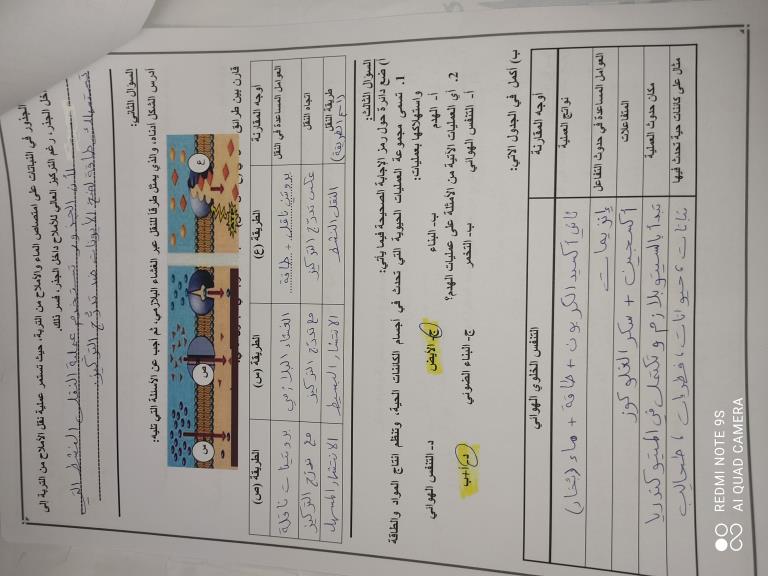 الجذور في النباتات على امتصاص الماء والأملاح من التربة، حيث تستمر عملية نقل الأملاح من التربة إلى
داخل الجذر، رغم التركيز العالي للأملاح داخل الجذر، فسر ذلك.
لأن الجذور تستخدم عملية النقل النشط التي
تستهلك طاقة لضخ الأيونات ضد تدرّج التركيز.
السؤال الثاني:
أدرس الشكل أدناه، والذي يمثل طرقا للنقل عبر الغشاء البلازمي، ثم أجب عن الأسئلة التي تليه:
س
ص
ع
قارن بين طرائق
أوجه المقارنة
الطريقة (ع)
الطريقة (س)
الطريقة (ص)
العوامل المساعدة في النقل
بروتين ناقل + طاقة
الغشاء البلازمي
بروتينات ناقلة
اتجاه النقل
عكس تدرّج التركيز
مع تدرّج التركيز
مع تدرّج التركيز
طريقة النقل
(اسم الطريقة)
النقل النشط
الانتشار البسيط
الانتشار المسهل
السؤال الثالث:
أ) ضع دائرة حول رمز الإجابة الصحيحة فيما يأتي:
1. تسمى مجموعة العمليات الحيوية التي تحدث في أجسام الكائنات الحية، وتنظم انتاج المواد والطاقة
واستهلاكها بعمليات:
أ- الهدم
ب- البناء
ج- الأيض
د- التنفس الهوائي
2. أي العمليات الآتية من الأمثلة على عمليات الهدم؟
أ- التنفس الهوائي
ب- التخمر
ج- البناء الضوئي
د- أ+ب
ب) أكمل في الجدول الآتي:
أوجه المقارنة
التنفس الخلوي الهوائي
نواتج العملية
ثاني أكسيد الكربون + طاقة + ماء (بخار)
العوامل المساعدة في حدوث التفاعل
إنزيمات
المتفاعلات
أكسجين + سكر الغلوكوز
مكان حدوث العملية
تبدأ بالسيتوبلازم وتكتمل في الميتوكندريا
مثال على كائنات حية تحدث فيها
نباتات، حيوانات، فطريات، طحالب
REDMI NOTE 9S
AI QUAD CAMERA